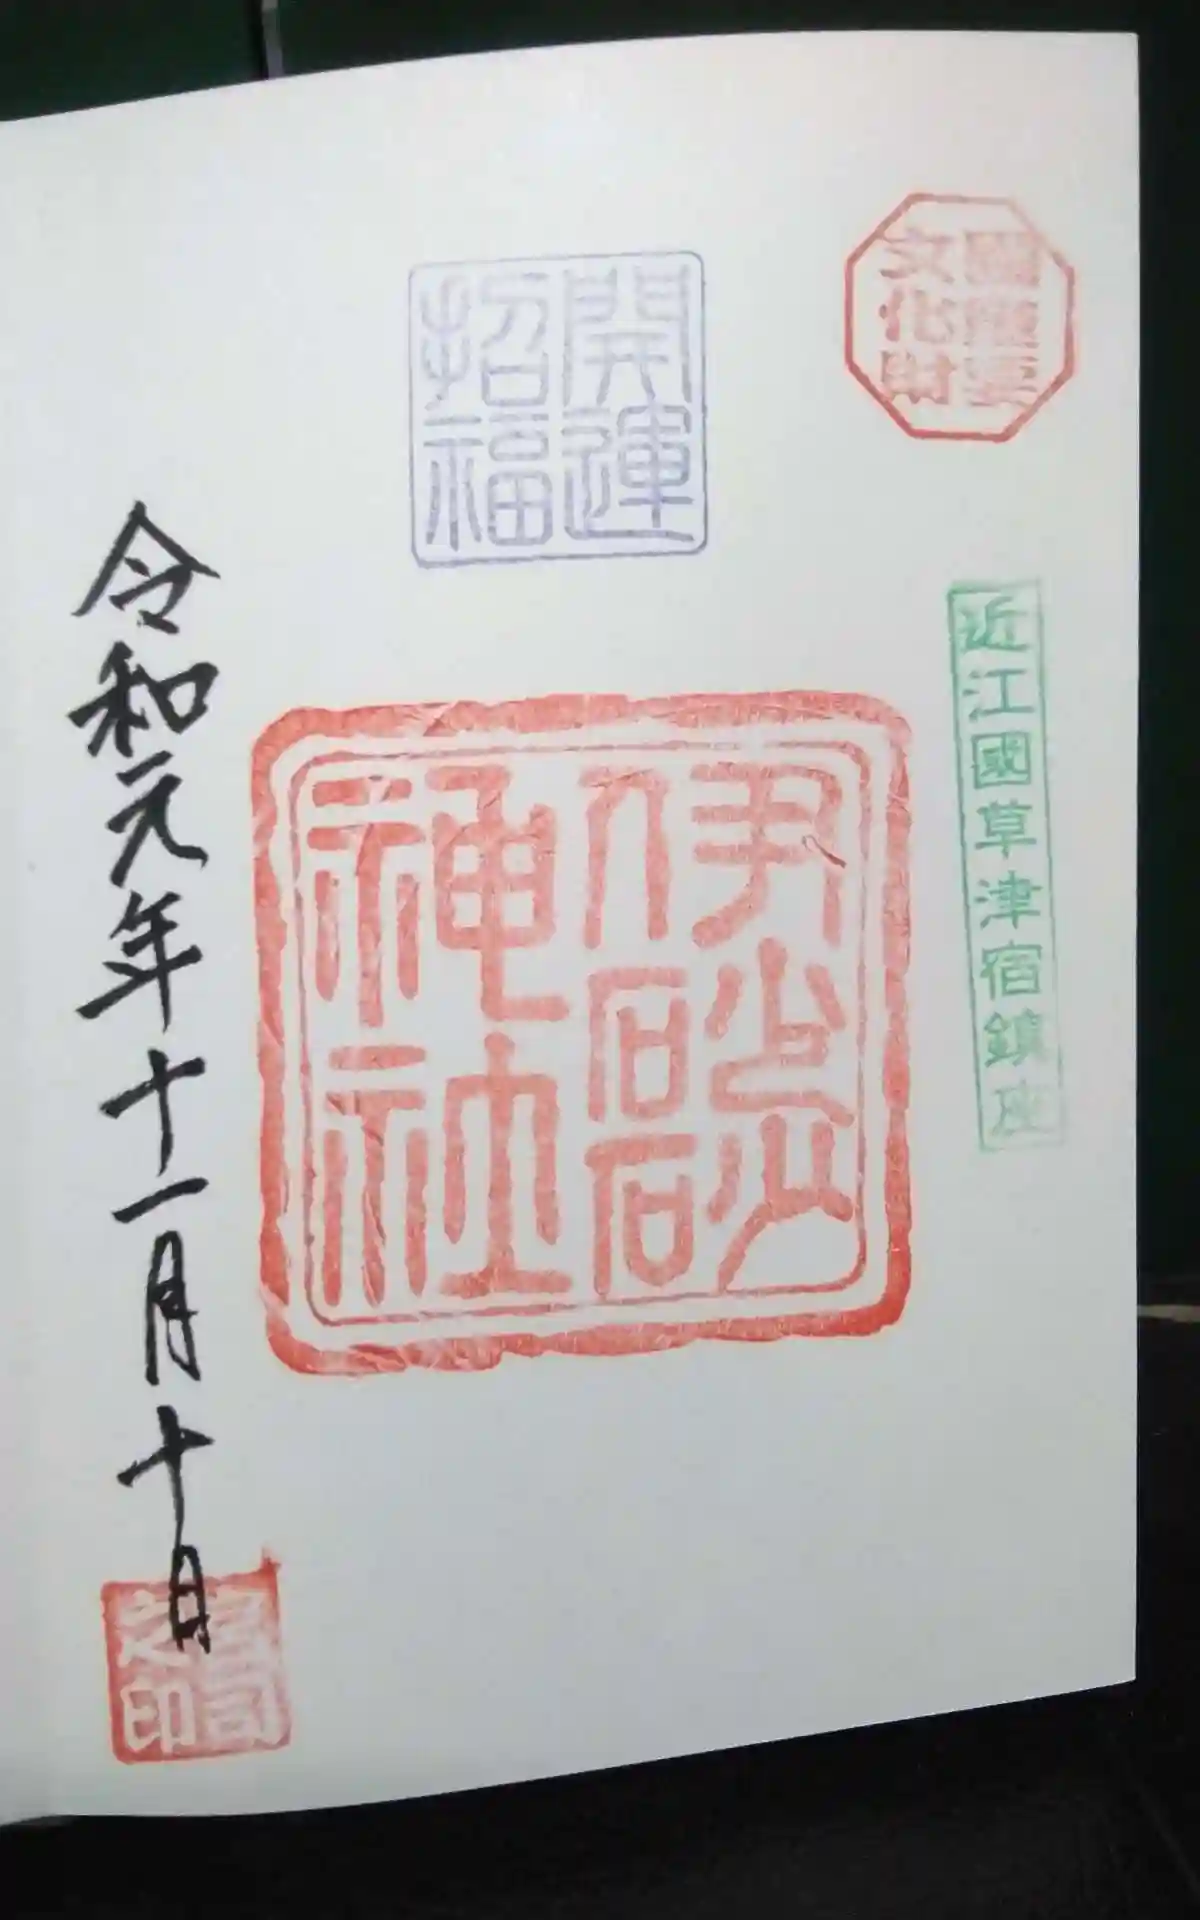 國重要
文化財
近江國草津宿鎮座
開運
招福
伊砂砂
神社
令和元年十一月十日
宮司
之印